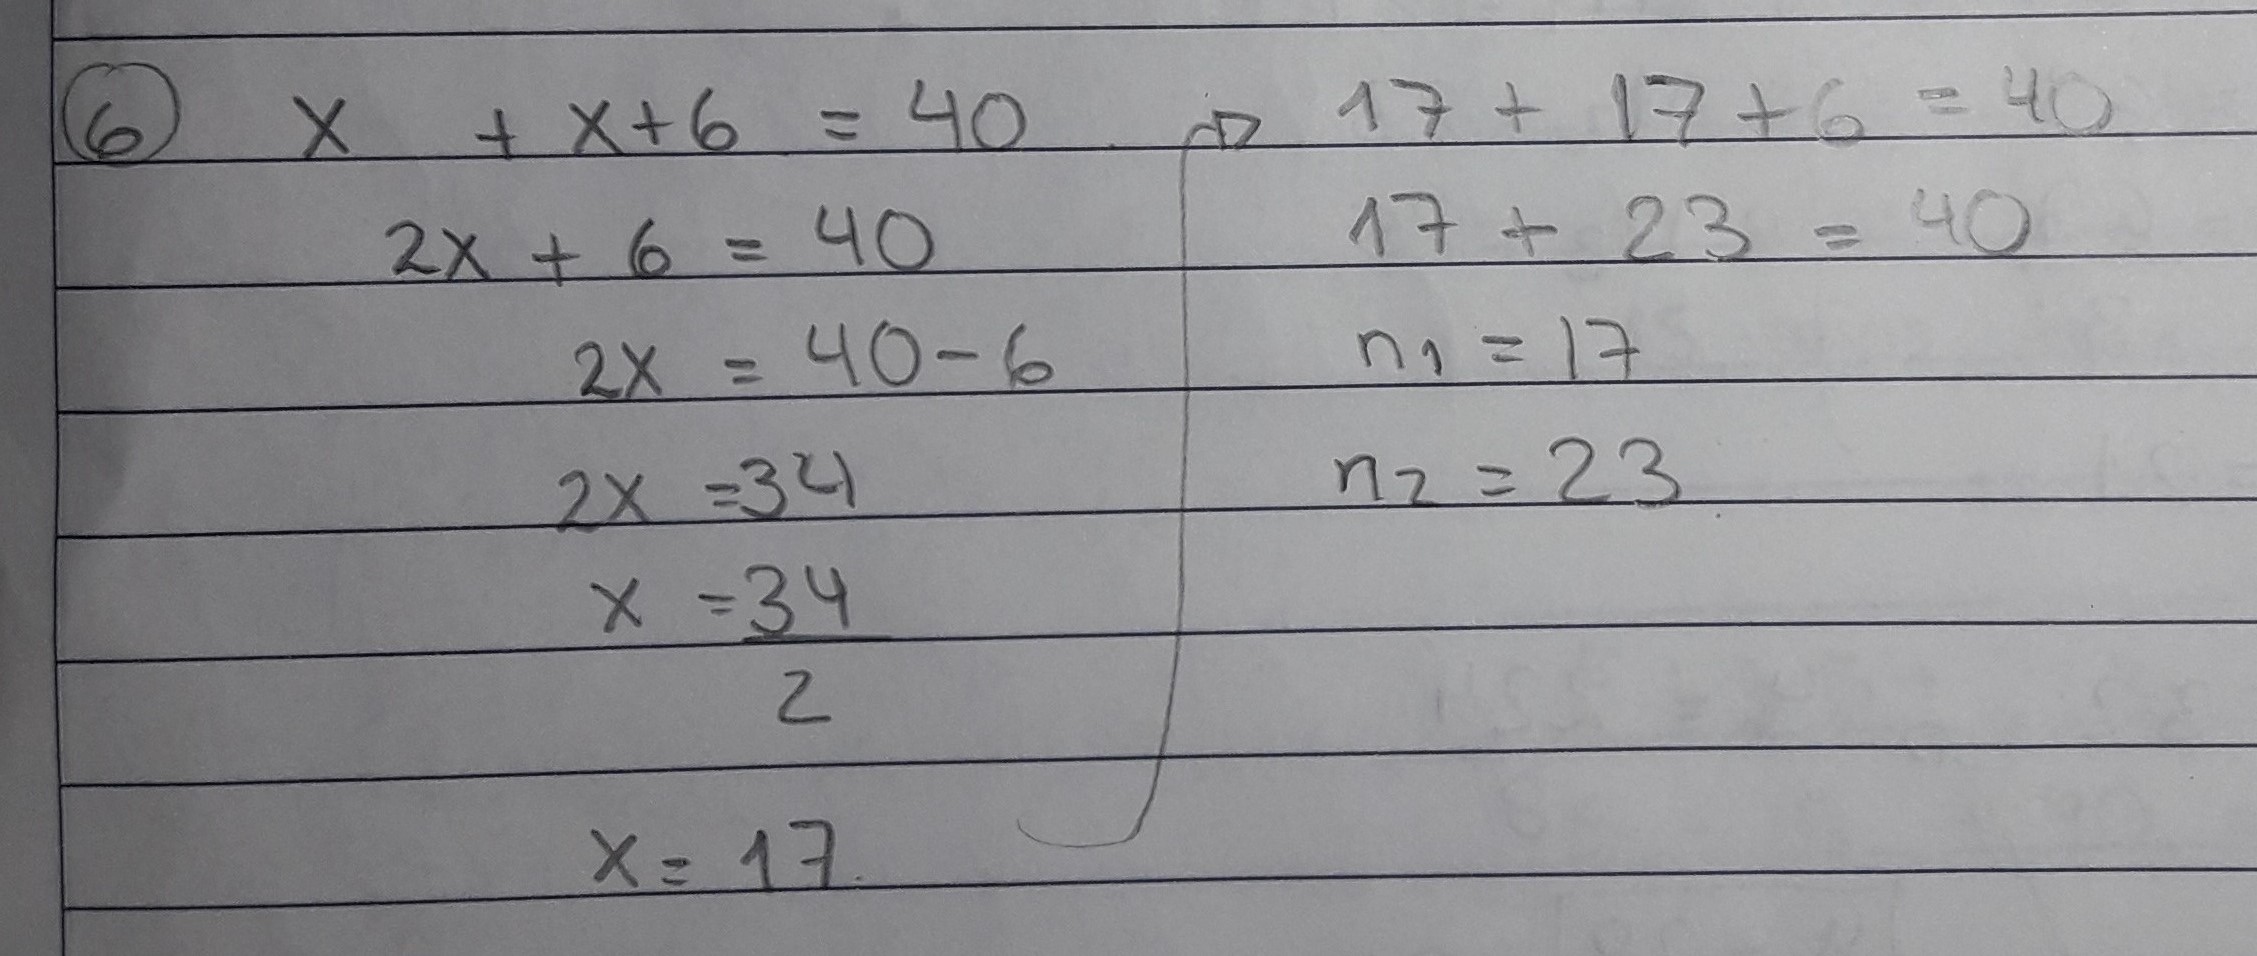 6 x + x + 6 = 40
2x + 6 = 40
2x = 40 - 6
2x = 34
x = 34
2
x = 17.
⇒ 17 + 17 + 6 = 40
17 + 23 = 40
n1 = 17
n2 = 23